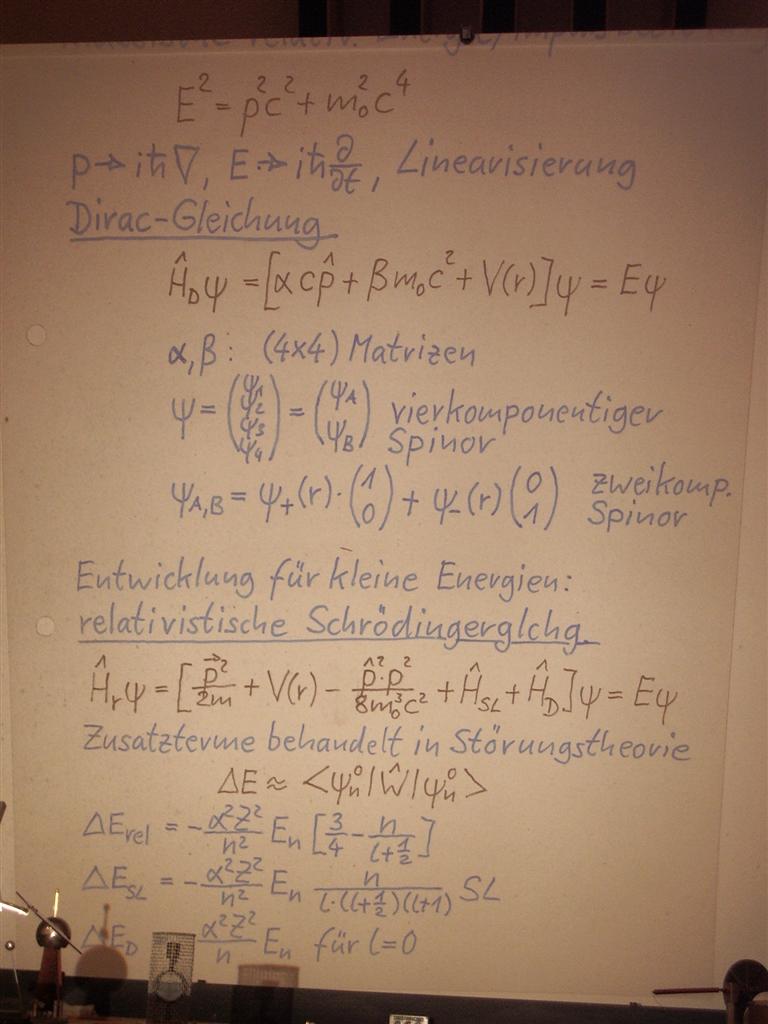 relativ. Energie/Impuls
E² = p²c² + m₀²c⁴
p → iħ∇, E → iħ ∂/∂t, Linearisierung
Dirac-Gleichung
Ĥ_D ψ = [α c p̂ + β m₀c² + V(r)] ψ = Eψ
α, β : (4×4) Matrizen
ψ = (ψ₁ ψ₂ ψ₃ ψ₄) = (ψ_A ψ_B) vierkomponentiger
Spinor
ψ_A,B = ψ₊(r)·(1 0) + ψ₋(r) (0 1) zweikomp.
Spinor
Entwicklung für kleine Energien:
relativistische Schrödingerglchg.
Ĥ_r ψ = [p⃗²/2m + V(r) − p̂²·p²/8m₀³c² + Ĥ_SL + Ĥ_D] ψ = Eψ
Zusatzterme behandelt in Störungstheorie
ΔE ≈ <ψ_n⁰|Ŵ|ψ_n⁰>
ΔE_rel = − α²Z²/n² E_n [3/4 − n/(l+1/2)]
ΔE_SL = − α²Z²/n² E_n n/(l·(l+1/2)(l+1)) SL
ΔE_D α²Z²/n E_n für l=0